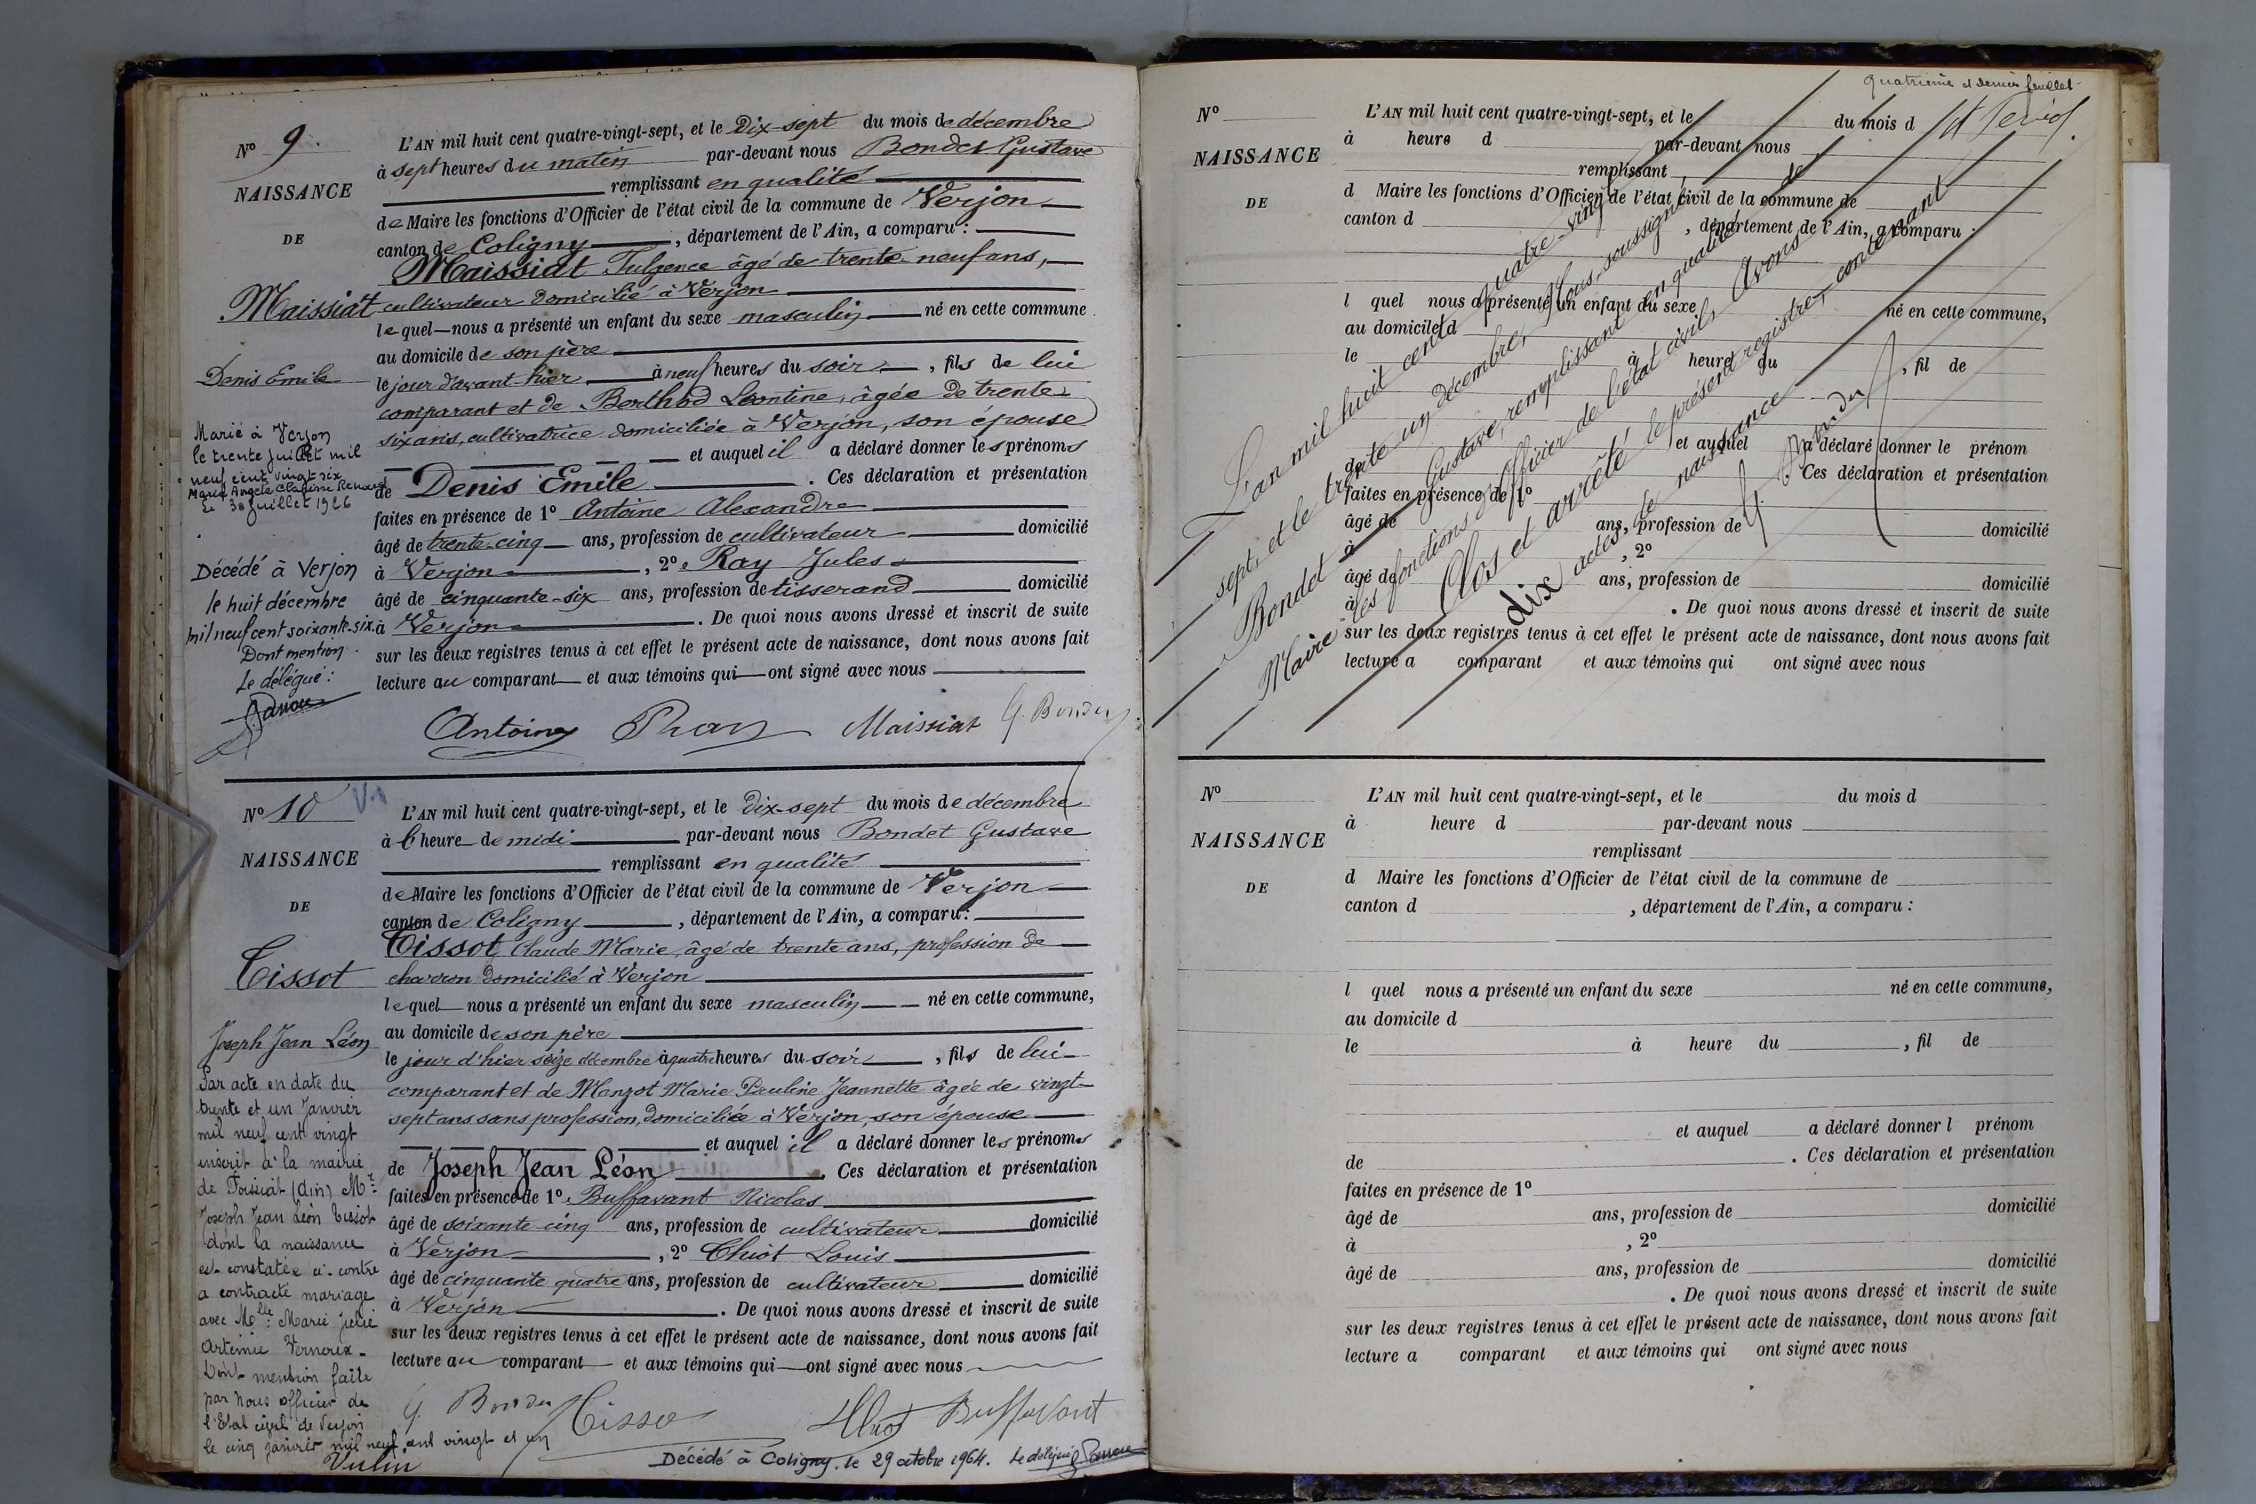 No 9.
NAISSANCE
DE
Maissiat
Denis Emile
Marié à Verjon
le trente juillet mil
neuf cent vingt six
Marie Angèle Clarisse Renaud
le 30 juillet 1926
Décédé à Verjon
le huit décembre
mil neuf cent soixante-six
Dont mention.
Le délégué :
L'AN mil huit cent quatre-vingt-sept, et le Dix-sept du mois de décembre
à sept heures du matin par-devant nous Bondet Gustave
remplissant en qualité
de Maire les fonctions d'Officier de l'état civil de la commune de Verjon
canton de Coligny, département de l'Ain, a comparu :
Maissiat Fulgence âgé de trente neuf ans,
cultivateur domicilié à Verjon
lequel nous a présenté un enfant du sexe masculin né en cette commune
au domicile de son père
le jour d'avant-hier à neuf heures du soir, fils de lui
comparant et de Berthod Léontine, âgée de trente
six ans, cultivatrice domiciliée à Verjon, son épouse
et auquel il a déclaré donner les prénoms
de Denis Emile. Ces déclaration et présentation
faites en présence de 1º Antoine Alexandre
âgé de trente-cinq ans, profession de cultivateur domicilié
à Verjon, 2º Ray Jules
âgé de cinquante-six ans, profession de tisserand domicilié
à Verjon. De quoi nous avons dressé et inscrit de suite
sur les deux registres tenus à cet effet le présent acte de naissance, dont nous avons fait
lecture au comparant et aux témoins qui ont signé avec nous
Antoine Ray Maissiat G. Bondet
No 10
NAISSANCE
DE
Tissot
Joseph Jean Léon
Par acte en date du
trente et un Janvier
mil neuf cent vingt
inscrit à la mairie
de (Ain) Mr
Joseph Jean Léon Tissot
dont la naissance
est constatée ci-contre
a contracté mariage
avec Mlle Marie Julie
Artémie
Dont mention faite
par nous officier de
l'Etat civil de Verjon
le cinq janvier mil neuf cent vingt et un
Vulin
L'AN mil huit cent quatre-vingt-sept, et le Dix-sept du mois de décembre
à l'heure de midi par-devant nous Bondet Gustave
remplissant en qualité
de Maire les fonctions d'Officier de l'état civil de la commune de Verjon
canton de Coligny, département de l'Ain, a comparu :
Tissot Claude Marie, âgé de trente ans, profession de
charron domicilié à Verjon
lequel nous a présenté un enfant du sexe masculin né en cette commune,
au domicile de son père
le jour d'hier seize décembre à quatre heures du soir, fils de lui
comparant et de Monzot Marie Pauline Jeannette âgée de vingt
sept ans sans profession, domiciliée à Verjon, son épouse
et auquel il a déclaré donner les prénoms
de Joseph Jean Léon. Ces déclaration et présentation
faites en présence de 1º Buffavant Nicolas
âgé de soixante-cinq ans, profession de cultivateur domicilié
à Verjon, 2º Chiot Louis
âgé de cinquante quatre ans, profession de cultivateur domicilié
à Verjon. De quoi nous avons dressé et inscrit de suite
sur les deux registres tenus à cet effet le présent acte de naissance, dont nous avons fait
lecture au comparant et aux témoins qui ont signé avec nous
G. Bondet Tissot Chiot Buffavant
Décédé à Coligny. le 29 octobre 1964. Le délégué
Quatrième et dernier feuillet
No
NAISSANCE
DE
L'AN mil huit cent quatre-vingt-sept, et le du mois d
à heure d par-devant nous
remplissant
d Maire les fonctions d'Officier de l'état civil de la commune de
canton d , département de l'Ain, a comparu :
l quel nous a présenté un enfant du sexe né en cette commune,
au domicile d
le à heure du , fil de
et auquel a déclaré donner le prénom
de Ces déclaration et présentation
faites en présence de 1º
âgé de ans, profession de domicilié
à , 2º
âgé de ans, profession de domicilié
à . De quoi nous avons dressé et inscrit de suite
sur les deux registres tenus à cet effet le présent acte de naissance, dont nous avons fait
lecture a comparant et aux témoins qui ont signé avec nous
L'an mil huit cent quatre-vingt
sept, et le trente un décembre, Nous, soussigné
Bondet Gustave, remplissant en qualité de
Maire les fonctions d'Officier de l'état civil, Avons
Clos et arrêté le présent registre, contenant
dix actes de naissance
G. Bondet
No
NAISSANCE
DE
L'AN mil huit cent quatre-vingt-sept, et le du mois d
à heure d par-devant nous
remplissant
d Maire les fonctions d'Officier de l'état civil de la commune de
canton d , département de l'Ain, a comparu :
l quel nous a présenté un enfant du sexe né en cette commune,
au domicile d
le à heure du , fil de
et auquel a déclaré donner l prénom
de . Ces déclaration et présentation
faites en présence de 1º
âgé de ans, profession de domicilié
à , 2º
âgé de ans, profession de domicilié
. De quoi nous avons dressé et inscrit de suite
sur les deux registres tenus à cet effet le présent acte de naissance, dont nous avons fait
lecture a comparant et aux témoins qui ont signé avec nous